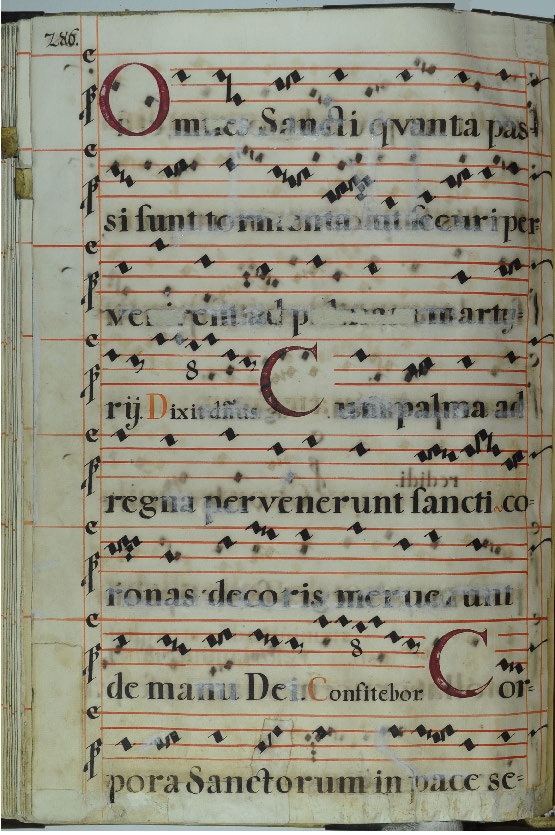 286.
Omnes Sancti qvanta pas=
si sunt tormenta vt securi per=
venirent ad palmam marty=
rij. Dixit dñus 8 Cum palma ad
regna pervenerunt sancti co=
ronas decoris meruerunt
de manu Dei. Confitebor. 8 Cor=
pora Sanctorum in pace se=